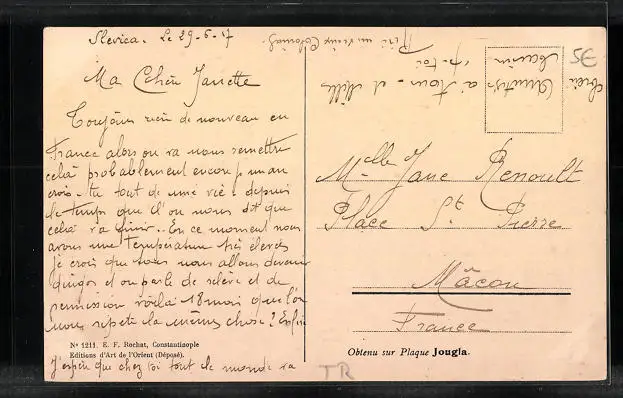 Slevica. Le 29-6-17
Ma Chère Janette
Toujours rien de nouveau en
France alors on va nous remettre
celà probablement encore un an
crois-tu tout de une vie : depuis
le temps que l'on nous dit que
celà va finir.. En ce moment nous
avons une température très élevée
je crois que nous nous allons devenir
et on parle de relève et de
permission voilà 18 mois que l'on
nous répète la même chose ? Enfin
J'espère que chez toi tout le monde va
Nº 1211. E. F. Rochat, Constantinople
Editions d'Art de l'Orient (Déposé).
à tous - et mille
Amitiés
Mlle Jane Renoult
Place St Pierre
Mâcon
France
Obtenu sur Plaque Jougla.
TR
35